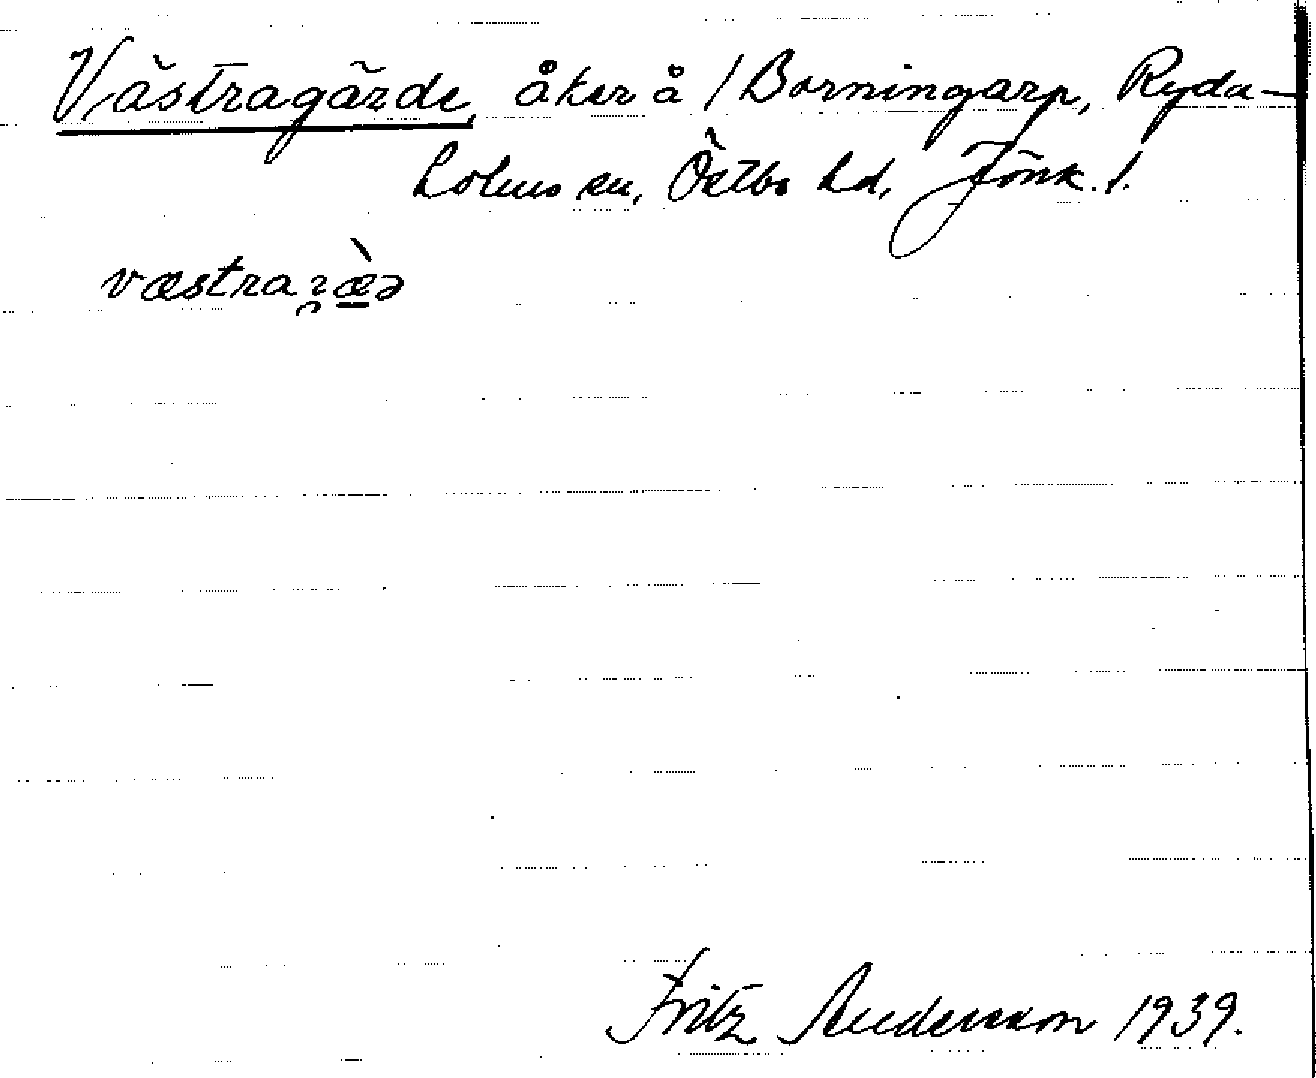 Västragärde, åker å /Borningarp, Ryda-
holms sn, Östbo hd, Jönk. l.
væstra
Fritz Andersson 1939.